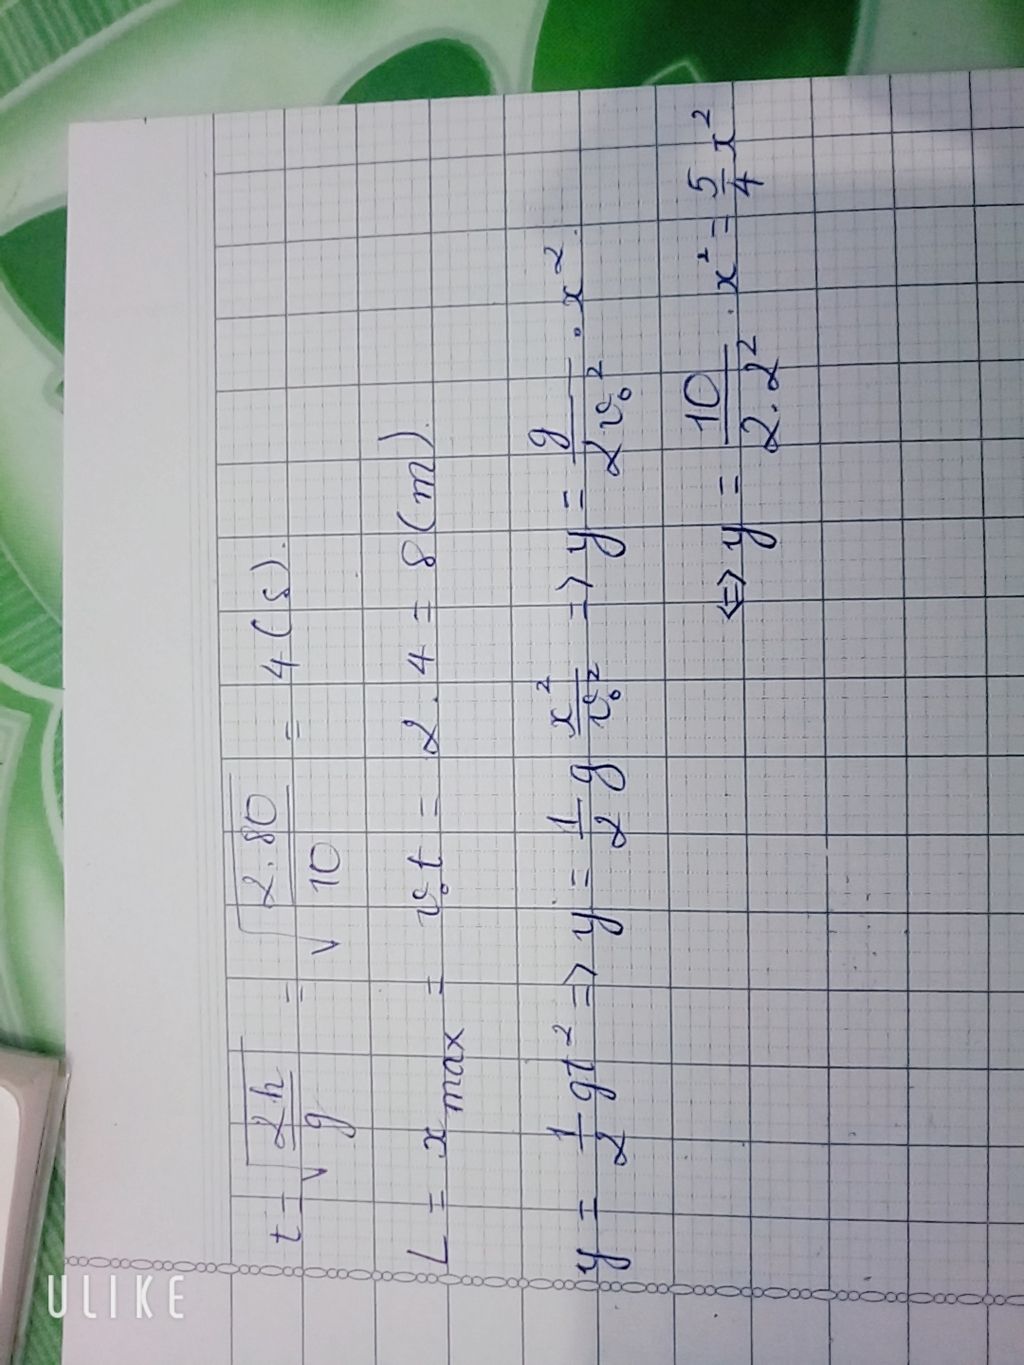 t = √(2h/g) = √(2.80/10) = 4(s).
L = x max = v₀t = 2.4 = 8(m).
y = 1/2 gt² => y = 1/2 g x²/v₀² => y = g/2v₀² . x².
<=> y = 10/2.2² . x² = 5/4 x²
ULIKE